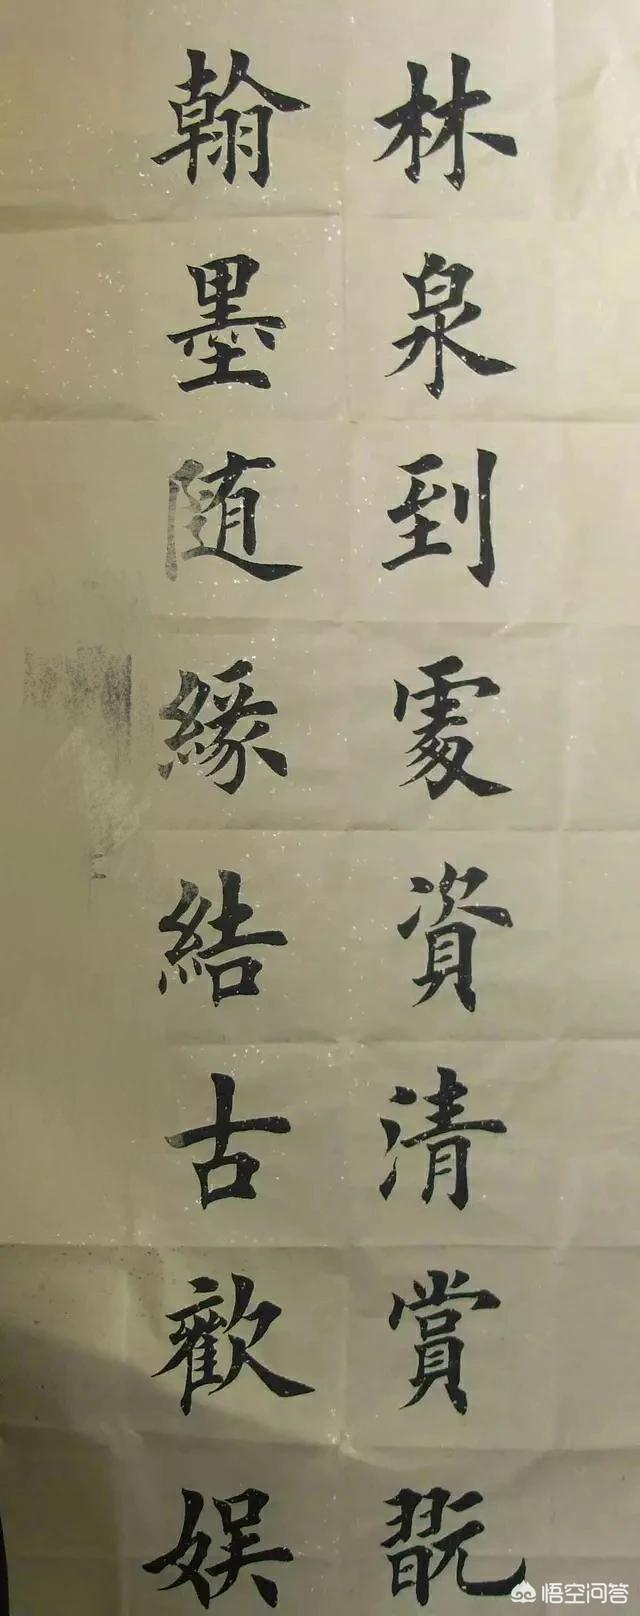 林泉到處資清賞翫
翰墨随緣結古歡娱
悟空问答